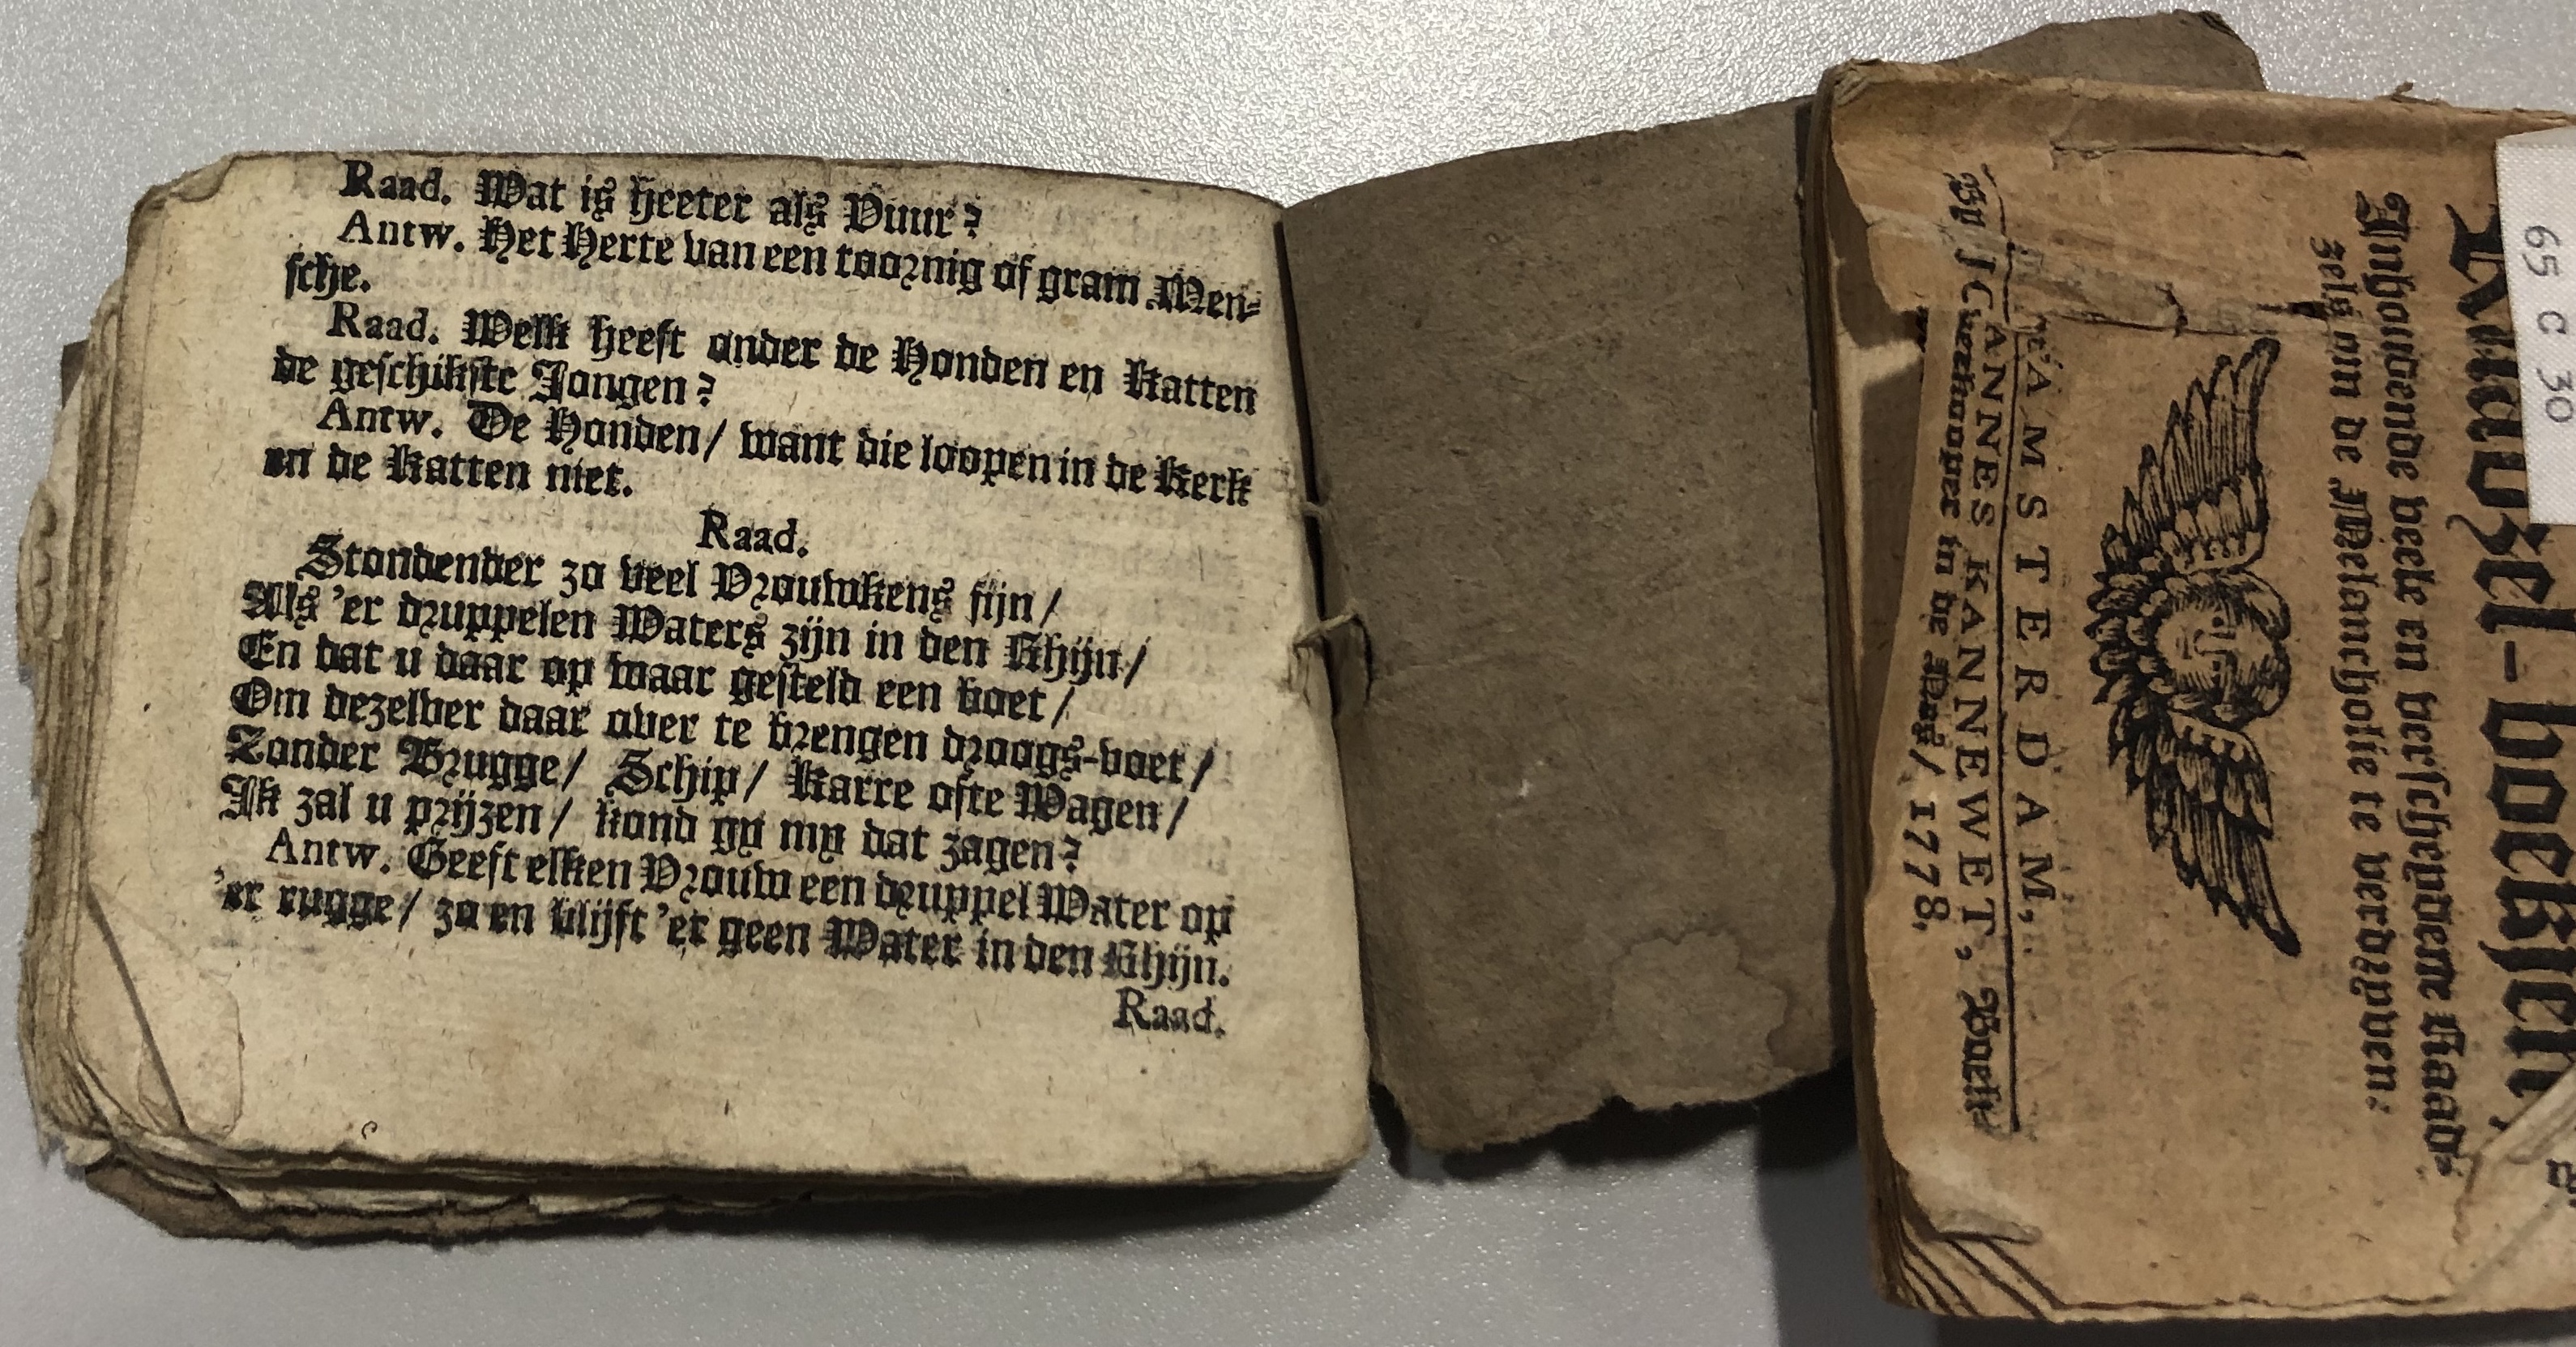 Raad. Wat is heeter als Vuur?
Antw. Het Herte van een toornig of gram Men-
sche.
Raad. Welk heeft onder de Honden en Katten
de geschikste Jongen?
Antw. De Honden/ want die loopen in de Kerk
en de Katten niet.
Raad.
Stondender zo veel Vrouwkens fijn/
Als 'er druppelen Waters zijn in den Rhijn/
En dat u daar op waar gesteld een boet/
Om dezelver daar over te brengen droogs-voet/
Zonder Brugge/ Schip/ Karre ofte Wagen/
Ik zal u prijzen/ kond gy my dat zagen?
Antw. Geeft elken Vrouw een druppel Water op
'er rugge/ zo en blijft 'er geen Water in den Rhijn.
Raad.
Raadzel-boekjen,
Inhoudende veele en verscheydene Raad-
zels om de Melancholie te verdryven:
t'AMSTERDAM,
By JOANNES KANNEWET, Boek-
verkooper in de Nes/ 1778.
65 C 30